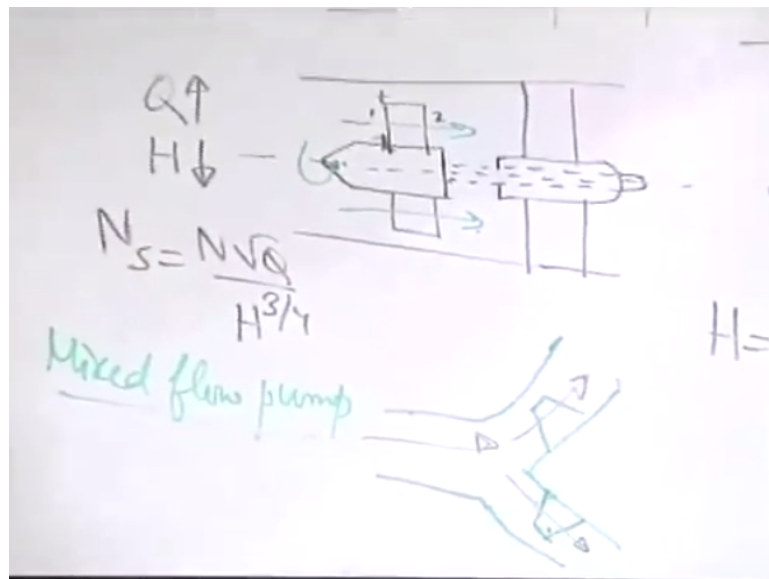 Q↑
H↓
1 2
N_s = N√Q / H^{3/4}
H=
Mixed flow pump